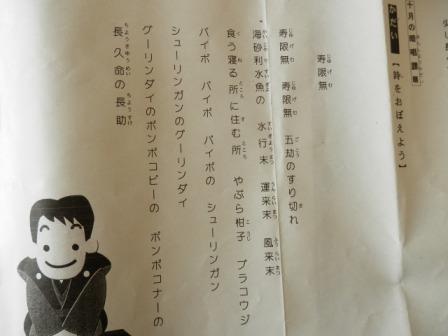 十月の暗唱課題
かだい【詩をおぼえよう】
寿限無
寿限無　寿限無　五劫のすり切れ
海砂利水魚の　水行末　運来末　風来末
食う寝る所に住む所　やぶら柑子　ブラコウジ
パイポ　パイポ　パイポの　シューリンガン
シューリンガンのグーリンダイ
グーリンダイのポンポコピーの　ポンポコナーの
長久命の長助